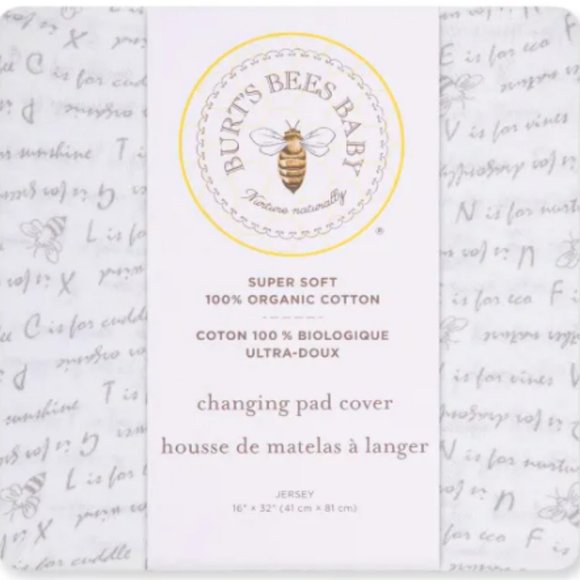 BURT'S BEES BABY
Nurture naturally
®
SUPER SOFT
100% ORGANIC COTTON
COTON 100 % BIOLOGIQUE
ULTRA-DOUX
changing pad cover
housse de matelas à langer
JERSEY
16" × 32" (41 cm × 81 cm)
C is for cudd
sunshine T i
L is f
C is for cuddle
sunshine T is
L is for
is for cuddle
E is for eco F
V is for vines
N is for nurt
is for eco F
is for vines
is for nurtu
for eco F is